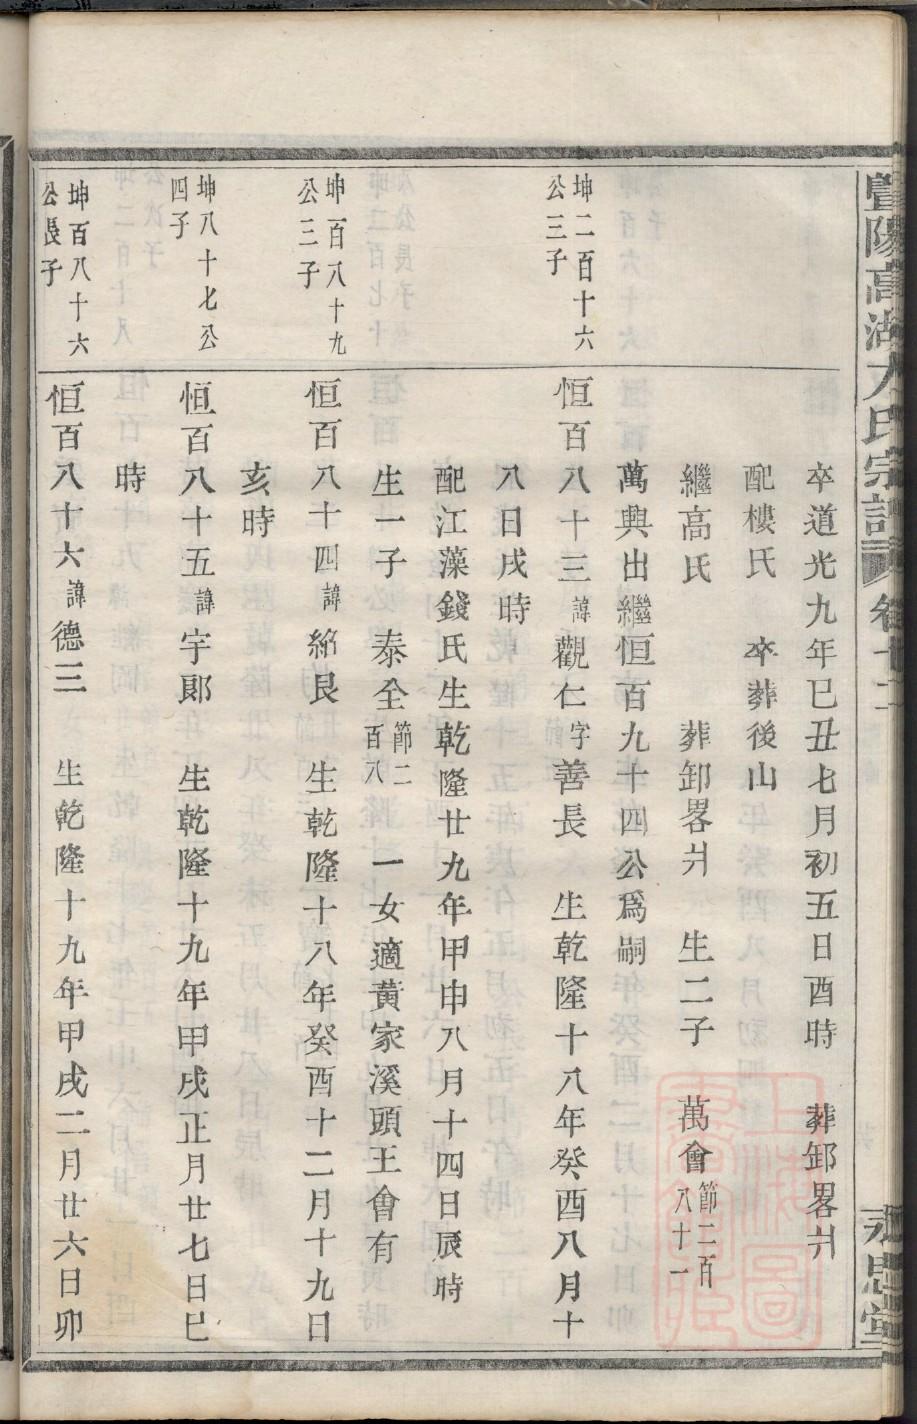 暨陽高湖人氏宗譜 卷十二
永思堂
卒道光九年巳丑七月初五日酉時 葬卸畧爿
配樓氏 卒葬後山
繼高氏 葬卸畧爿 生二子 萬會節二百八十一
萬興出繼恒百九十四公爲嗣
坤二百十六公三子
恒百八十三諱觀仁字善長 生乾隆十八年癸酉八月十
八日戌時
配江藻錢氏生乾隆廿九年甲申八月十四日辰時
生一子 泰全節二百八 一女適黄家溪頭王會有
坤一百八十九公三子
恒百八十四諱紹良 生乾隆十八年癸酉十二月十九日
亥時
坤八十七公四子
恒百八十五諱宇郎 生乾隆十九年甲戌正月廿七日巳
時
坤百八十六公長子
恒百八十六諱德三 生乾隆十九年甲戌二月廿六日卯